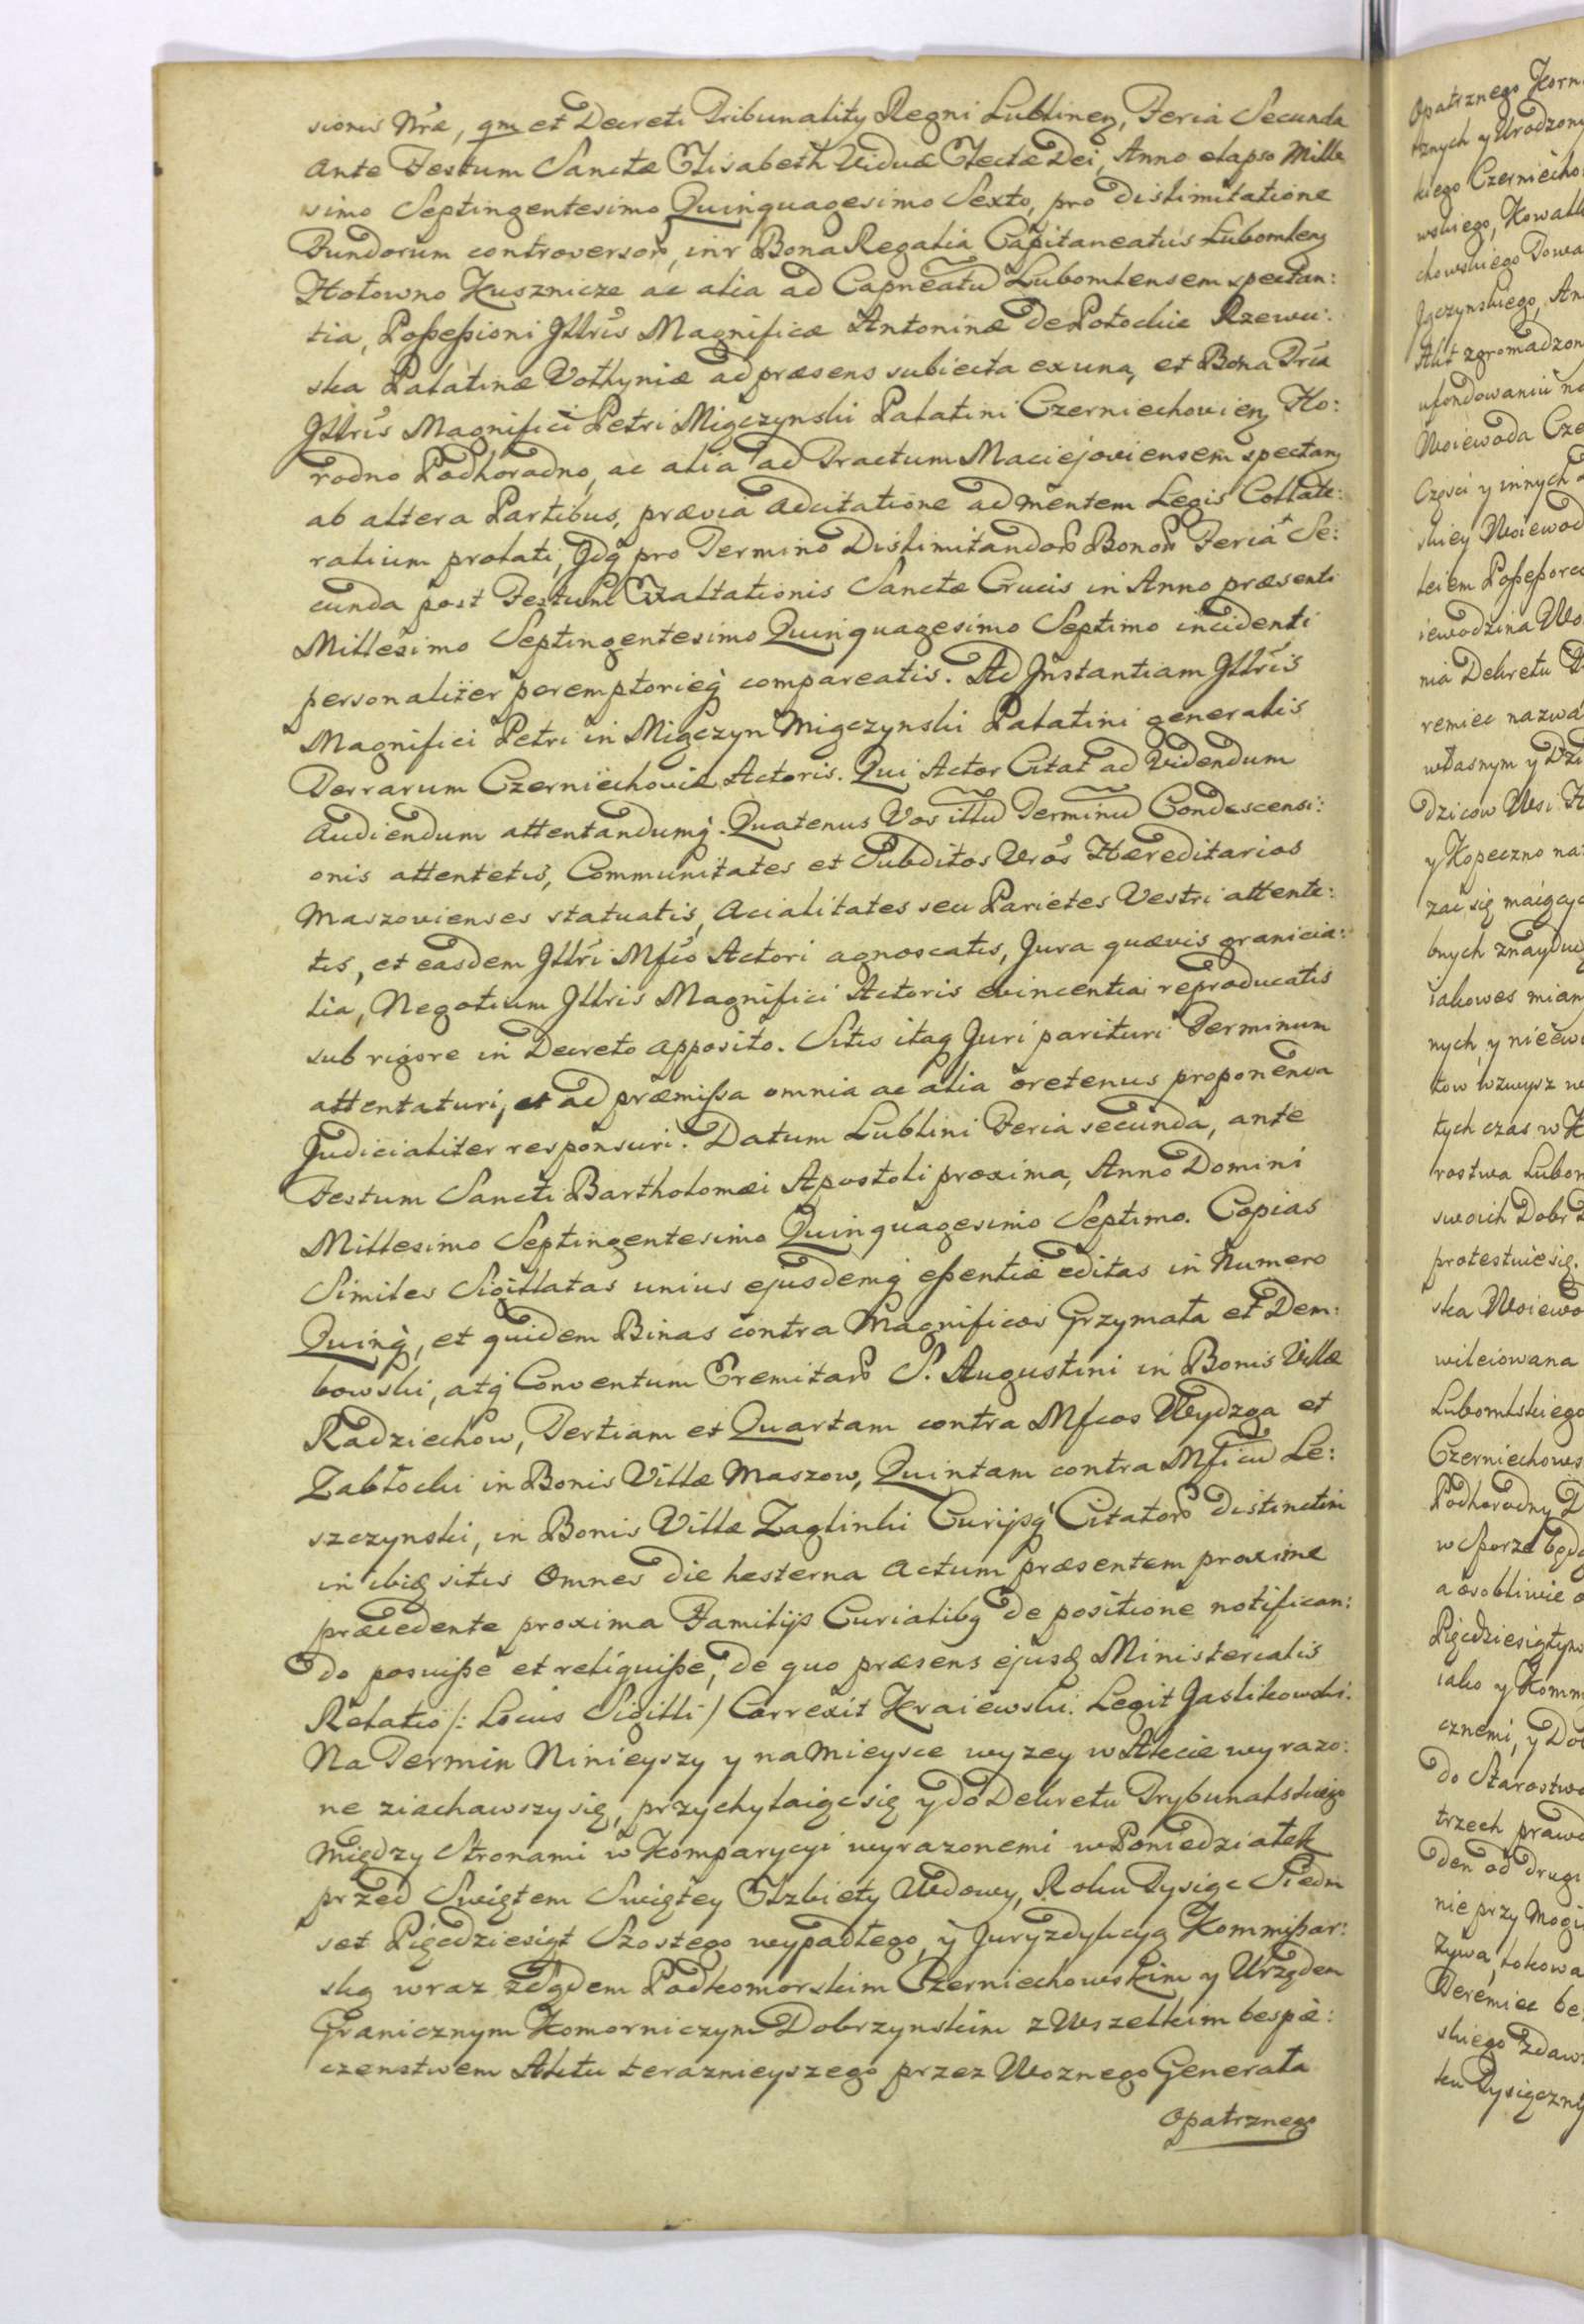 sionis Nrae, qm et Decreti Tribunalitij Regni Lublinen, Feria Secunda
Ante Festum Sanctæ Elisabeth Viduæ Electæ Dei, Anno elapso Mille
simo Septingentesimo Quinquagesimo Sexto, pro dislimitatione
Fundorum controversor, intr Bona Regalia Capitaneatus Lubomlen
Hołowno Kusznicze ac alia ad Capneatu Lubomlensem spectan:
tia, Poßeßioni Jllris Magnificæ Antoninæ de Potockie Rzewu:
ska Palatinæ Volhyniæ ad præsens subiecta ex una, et Bona Pria
Jllris Magnifici Petri Miączynski Palatini Czerniechovien Ho:
rodno Podhorodno, ac alia ad Tractum Maciejoviensem spectan
ab altera Partibus, prævia adcitatione ad mentem Legis Collate:
ralium prolati, Jdq pro Termino Dislimitandor Bonor Feria Se:
cunda post Festum Exaltationis Sanctæ Crucis in Anno præsenti
Millesimo Septingentesimo Quinquagesimo Septimo incidenti
personaliter peremptorieq compareatis. Ad Jnstantiam Jllris
Magnifici Petri in Miączyn Miączynski Palatini generalis
Terrarum Czerniechoviæ Actoris. Qui Actor Citat ad Videndum
Audiendum attentandumq. Quatenus Vos illu Terminu Condescensi:
onis attentetis, Communitates et Subditos Vros Hæreditarios
Maszovienses statuatis, Acialitates seu Parietes Vestri attente:
tis, et easdem Jllri Mfco Actori agnoscatis, Jura quævis granicia:
lia, Negotium Jllris Magnifici Actoris evincentia reproducatis
sub rigore in Decreto apposito. Sitis itaq Juri parituri Terminum
attentaturi, et ad præmißa omnia ac alia oretenus proponenda
Judicialiter responsuri. Datum Lublini Feria secunda, ante
Festum Sancti Bartholomæi Apostoli proxima, Anno Domini
Millesimo Septingentesimo Quinquagesimo Septimo. Copias
Similes Sigillatas unius ejusdemq eßentiæ editas in Numero
Quinq, et quidem Binas contra Magnificos Grzymała et Dem:
bowski, atq Conventum Eremitar S. Augustini in Bonis Villæ
Radziechow, Tertiam et Quartam contra Mfcos Wydzga et
Zabłocki in Bonis Villæ Maszow, Quintam contra Mficu Le:
szczynski, in Bonis Villæ Zaglinki Curijsq Citator distinctim
in ibiq sitis Omnes die hesterna Actum præsentem proxime
præcedente proxima Familijs Curialibq de positione notifican:
do posuiße et reliquiße, de quo præsens ejusq Ministerialis
Relatio /: Locus Sigilli / Correxit Kraiewski. Legit Gaslikowski.
Na Termin Ninieyszy y na Mieysce wyzey w Akcie wyrazo:
ne ziachawszy się, przychylaiąc się y do Dekretu Trybunalskiego
Między Stronami w Komparycyi wyrazonemi w Poniedziałek
przed Swiętem Swiętey Elzbiety Wdowy, Roku Tysiąc Siedm
set Pięcdziesiąt Szostego wypadłego, y Juryzdykcyą Kommißar:
ską wraz z Sądem Podkomorskim Czerniechowskim y Urzędem
Granicznym Komorniczym Dobrzynskim z Wszelkim bespie:
czenstwem Aktu teraznieyszego przez Woznego Generała
Opatrznego
Opatrznego
kiego Czerniecho
chowskiego
Akt zgromadzon
ufondowaniu
Woiewoda Cze
Części y innych
skiey Woiewod
iewodzina Wo
nia Dekretu
remiec nazwa
własnym y Dzi
dzicow Wsi
y Kopeczno
zai się maiący
bnych znayduią
tych czas w
rostwa Lubom
swoich Dobr
protestuie się.
ska Woiewo
Lubomlskiego
Czerniechows
Podhorodny
a osobliwie
Pięcdziesiątym
iako y Komm
cznemi, y Do
do Starostwa
trzech prawd
den od drugi
nie przy Mogi
Teremiec be
skiego zdaw